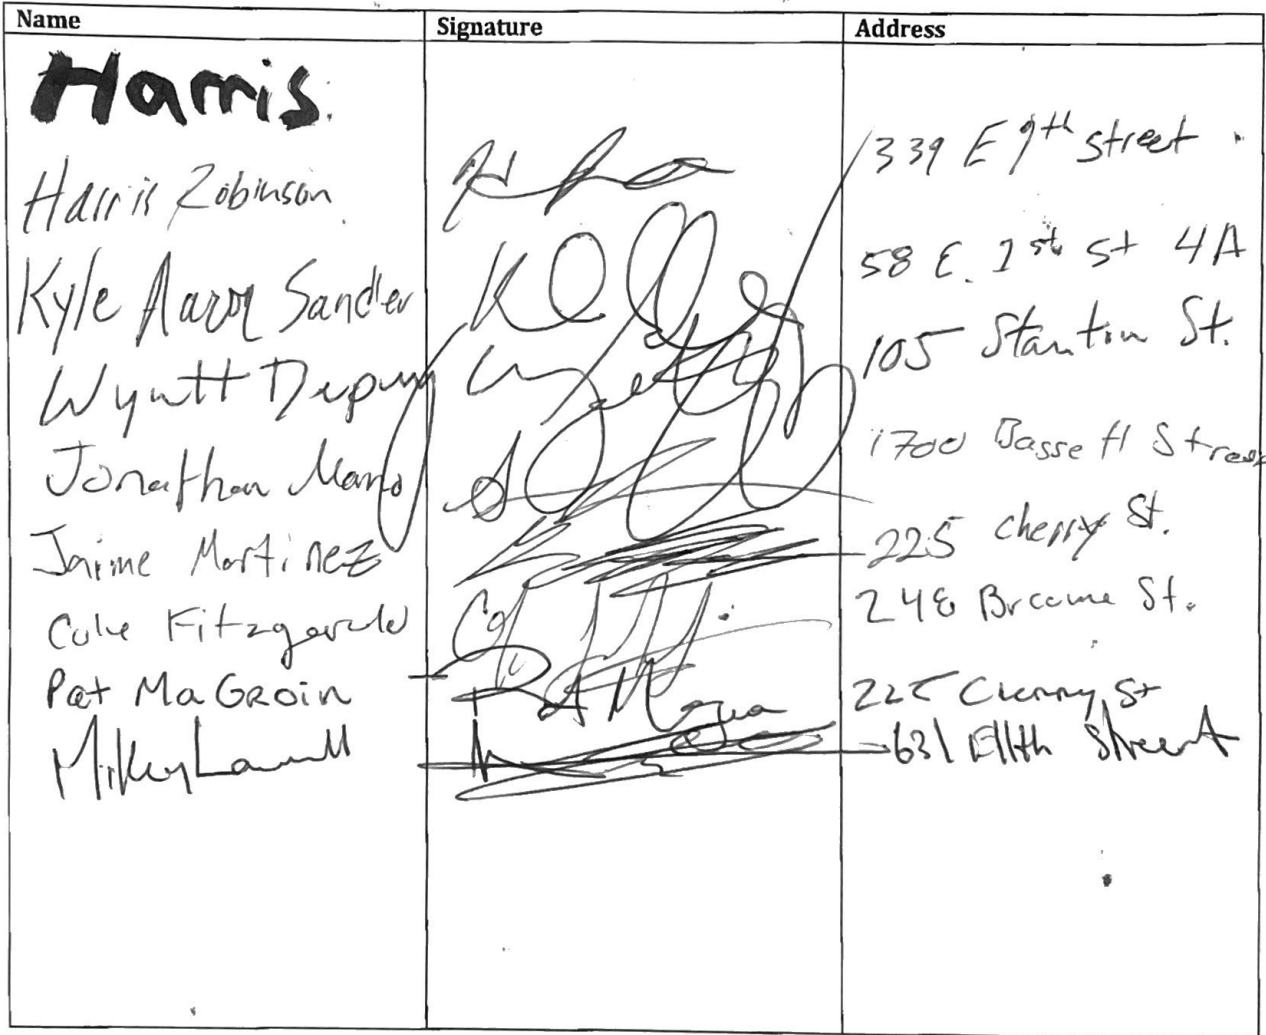 Name Signature Address
Harris
Harris Robinson 339 E 9th street
Kyle Aaron Sandler 58 E. 1st St 4A
Wyatt 105 Stanton St.
Jonathan 1700 Bassett Street
Jaime Martinez 225 Cherry St.
Fitzgerald 248 Broome St.
Pat MaGroin 225 Cherry St
Mikey 631 E 11th Street